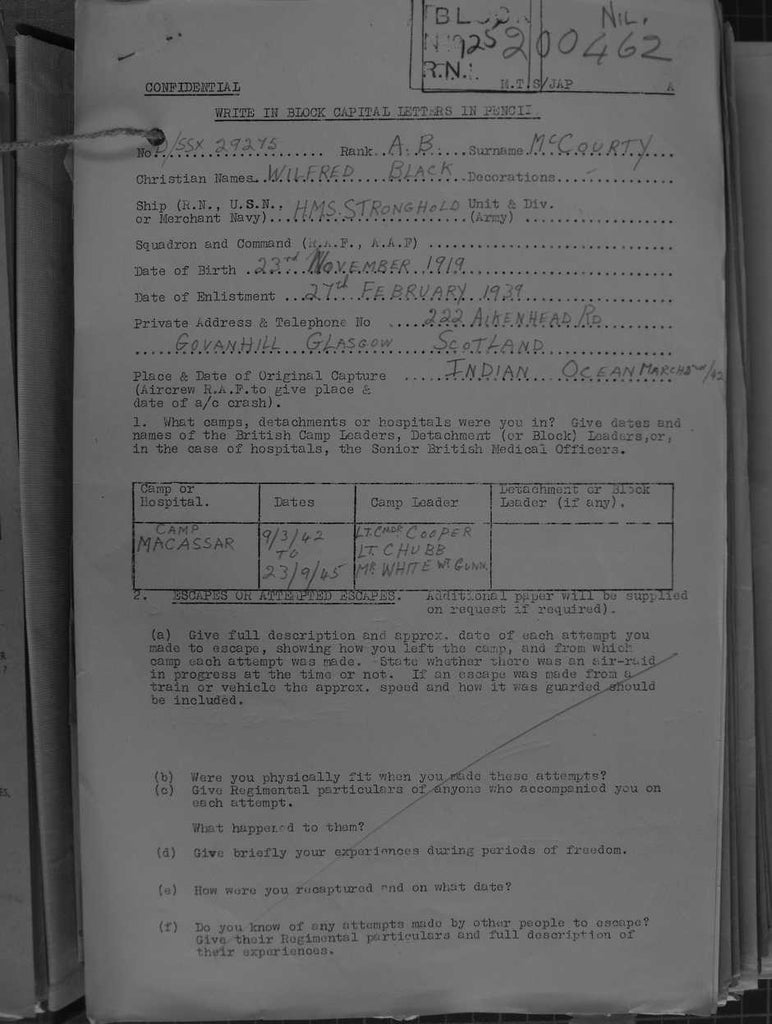 NIL.
BLOCK
925 200462
R.N.
M.I.9/JAP A
CONFIDENTIAL
WRITE IN BLOCK CAPITAL LETTERS IN PENCIL.
No D/SSX 29275 Rank A.B. Surname McCOURTY
Christian Names WILFRED BLACK Decorations -
Ship (R.N., U.S.N., HMS. STRONGHOLD Unit & Div.
or Merchant Navy) (Army)
Squadron and Command (R.A.F., A.A.F)
Date of Birth 23rd NOVEMBER 1919
Date of Enlistment 27th FEBRUARY 1939
Private Address & Telephone No 222 AIKENHEAD RD
GOVANHILL GLASGOW SCOTLAND
Place & Date of Original Capture INDIAN OCEAN MARCH /42
(Aircrew R.A.F. to give place &
date of a/c crash).
1. What camps, detachments or hospitals were you in? Give dates and
names of the British Camp Leaders, Detachment (or Block) Leaders, or,
in the case of hospitals, the Senior British Medical Officers.
Camp or Hospital. Dates Camp Leader Detachment or Block Leader (if any).
CAMP MACASSAR 9/3/42 TO 23/9/45 LT. CMDR COOPER
LT CHUBB
MR WHITE WT GUNN.
2. ESCAPES OR ATTEMPTED ESCAPES. Additional paper will be supplied
on request if required).
(a) Give full description and approx. date of each attempt you
made to escape, showing how you left the camp, and from which
camp each attempt was made. State whether there was an air-raid
in progress at the time or not. If an escape was made from a
train or vehicle the approx. speed and how it was guarded should
be included.
(b) Were you physically fit when you made these attempts?
(c) Give Regimental particulars of anyone who accompanied you on
each attempt.
What happened to them?
(d) Give briefly your experiences during periods of freedom.
(e) How were you recaptured and on what date?
(f) Do you know of any attempts made by other people to escape?
Give their Regimental particulars and full description of
their experiences.